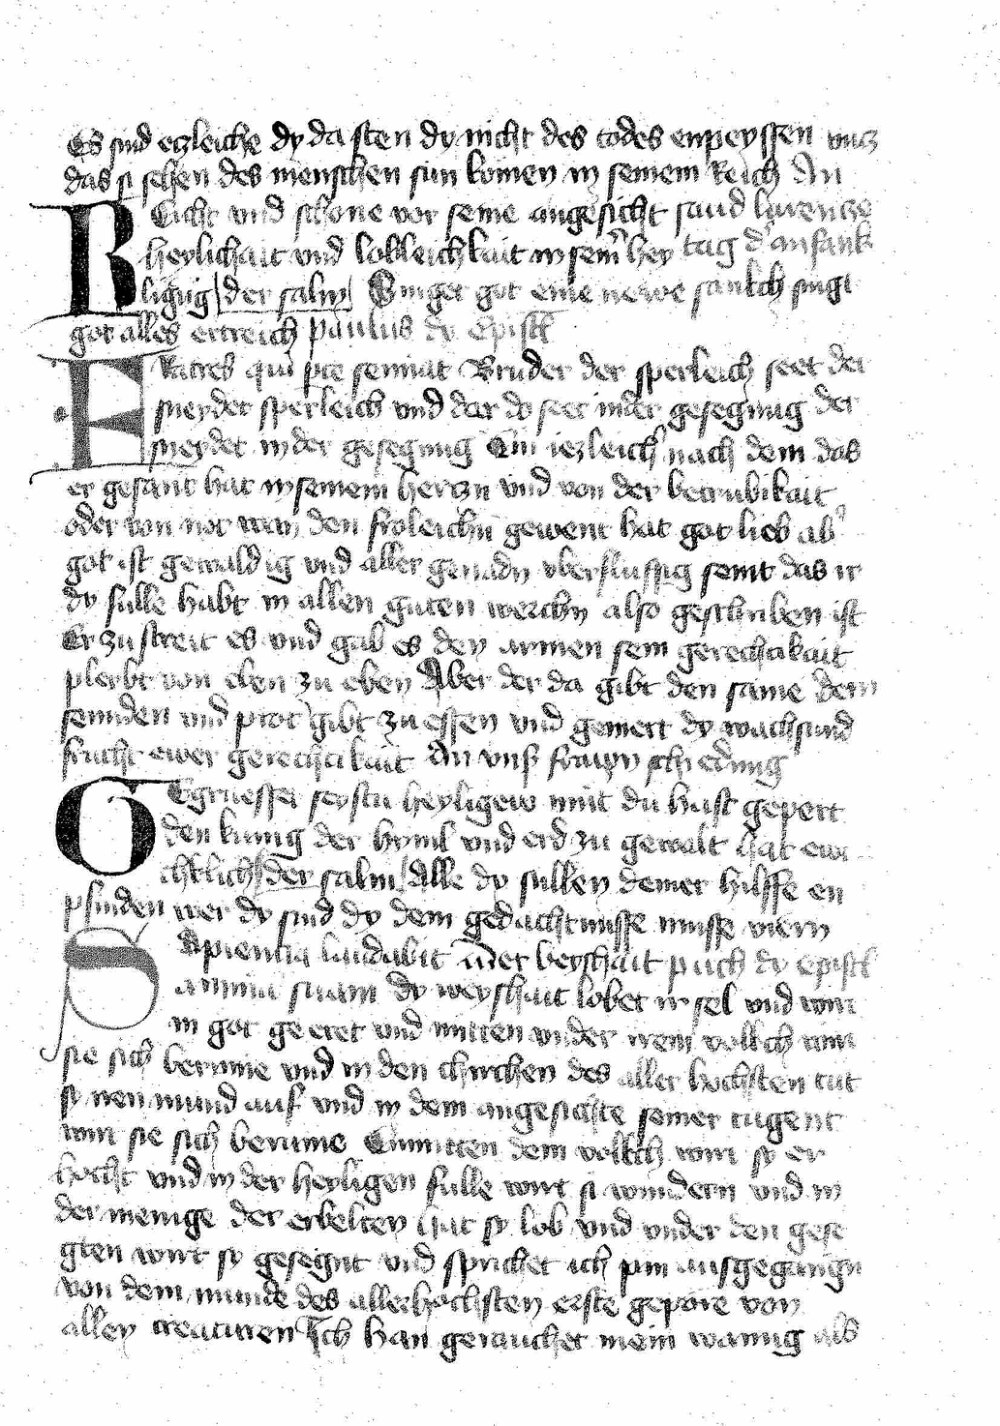 Es sind etzleiche dy da sten dy nicht des todes enpeyssen uncz
das si sehen des menschen sun komen in seinem Reich An
Beicht vnd schone vor seine angesicht sand lorencze
heylichait vnd lobleichkait in seinr hey tag der anfank
ligung der salm Singet got eine newe sankch singt
got alles ertreich paulus dy Epistl
Fratres qui pce seminat Bruder der sperleich seet der
sneydet sperleich vnd der do seet in der gesegnung der
sneydet in der gesegnung Ein iezleicher nach dem das
er gesant hat in seinem herczn vnd von der betrubikait
oder von not wan den froleichn gewent hat got lieb aber
got ist gewaldig vnd aller genadn vberflussig semt das ir
dy fulle habt in allen guten werchn also geschriben ist
Er zustreit es vnd gab es den armen sein gerechtikait
pleybt von eben zu eben Aber der da gibt den same dem
seunden vnd prot gibt zu essen vnd gemert dy wachsund
frucht ewer gerechtikait An vnser frawn schiedung
Gegruesset seystu heyligew muter du hast gepert
den kunig der hyml vnd erd zu gewalt hat ewi
chklich der salm Alle dy sullen deiner hilffe en
phinden wer dy sind dy dem gedachtnusse nusse viern
Sapiencia laudabit in der beyshait puch dy epistl
animam suam dy weyshait lobet ir sel vnd wirt
in got geeret vnd mitten vnder irem volkch wirt
sie sich berume vnd in den chirchen des aller hochsten tut
sy iren mund auf vnd in dem angesichte seiner tugent
wirt sie sich berume Enmitten dem volkch wirt sy er
hocht vnd in der heyligen fulle wirt si wundern vnd in
der menige der erbelten hat sy lob vnd vnder den gese
gten wirt sy gesegnt vnd sprichet ich pin ausgegangn
von dem munde des allerhochsten erste gepore von
allen creaturen Ich han gerauchet mein wanung als